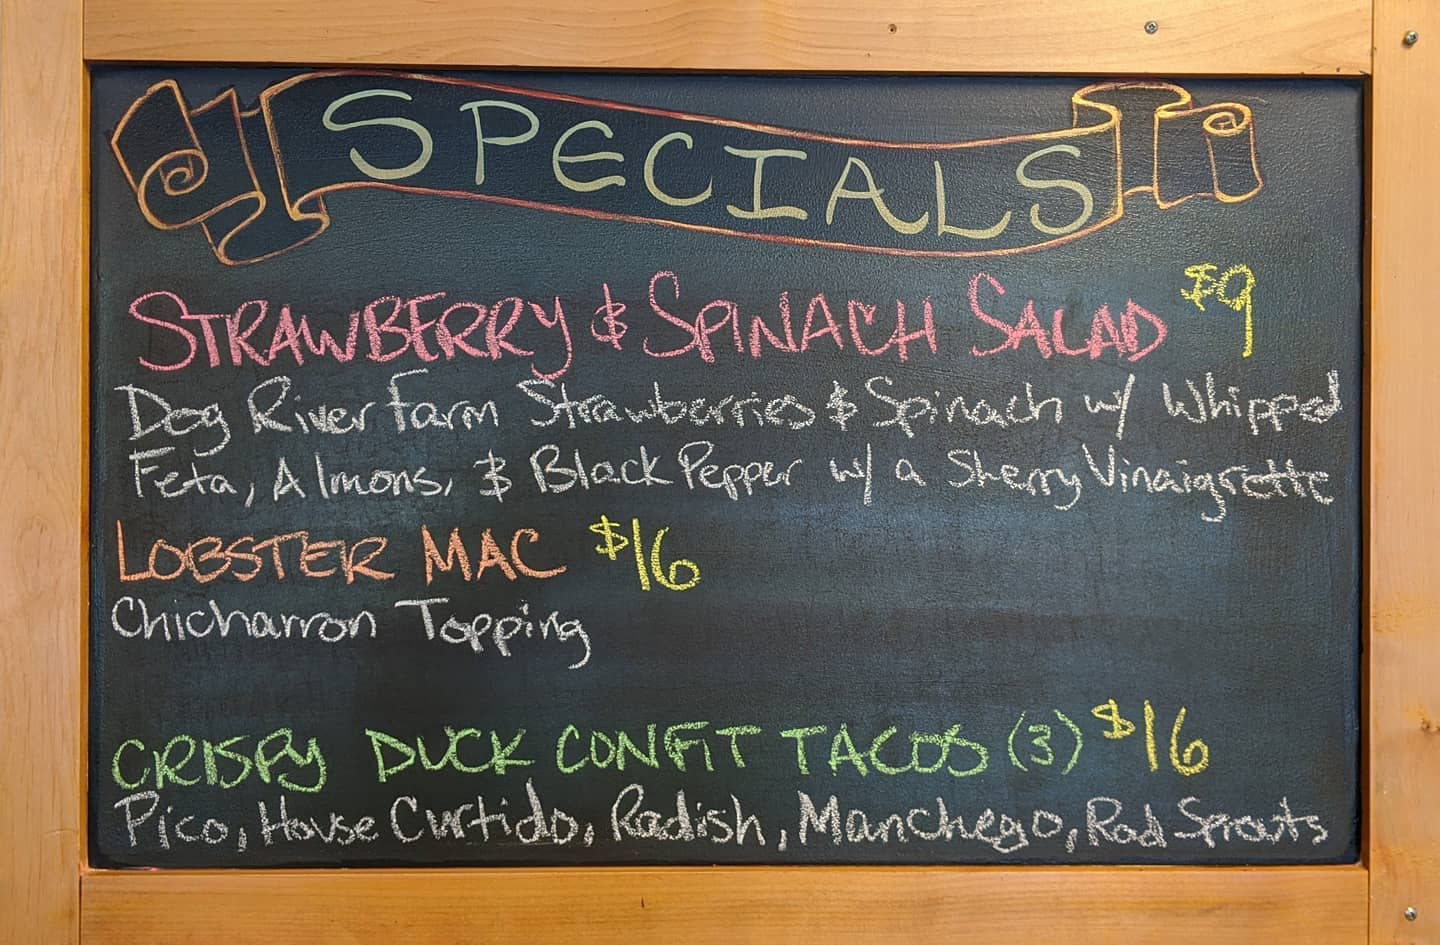 SPECIALS
STRAWBERRY & SPINACH SALAD $9
Dog River Farm Strawberries & Spinach w/ Whipped
Feta, Almons, & Black Pepper w/ a Sherry Vinaigrette
LOBSTER MAC $16
Chicharron Topping
CRISPY DUCK CONFIT TACOS (3) $16
Pico, House Curtido, Radish, Manchego, Rad Sprouts